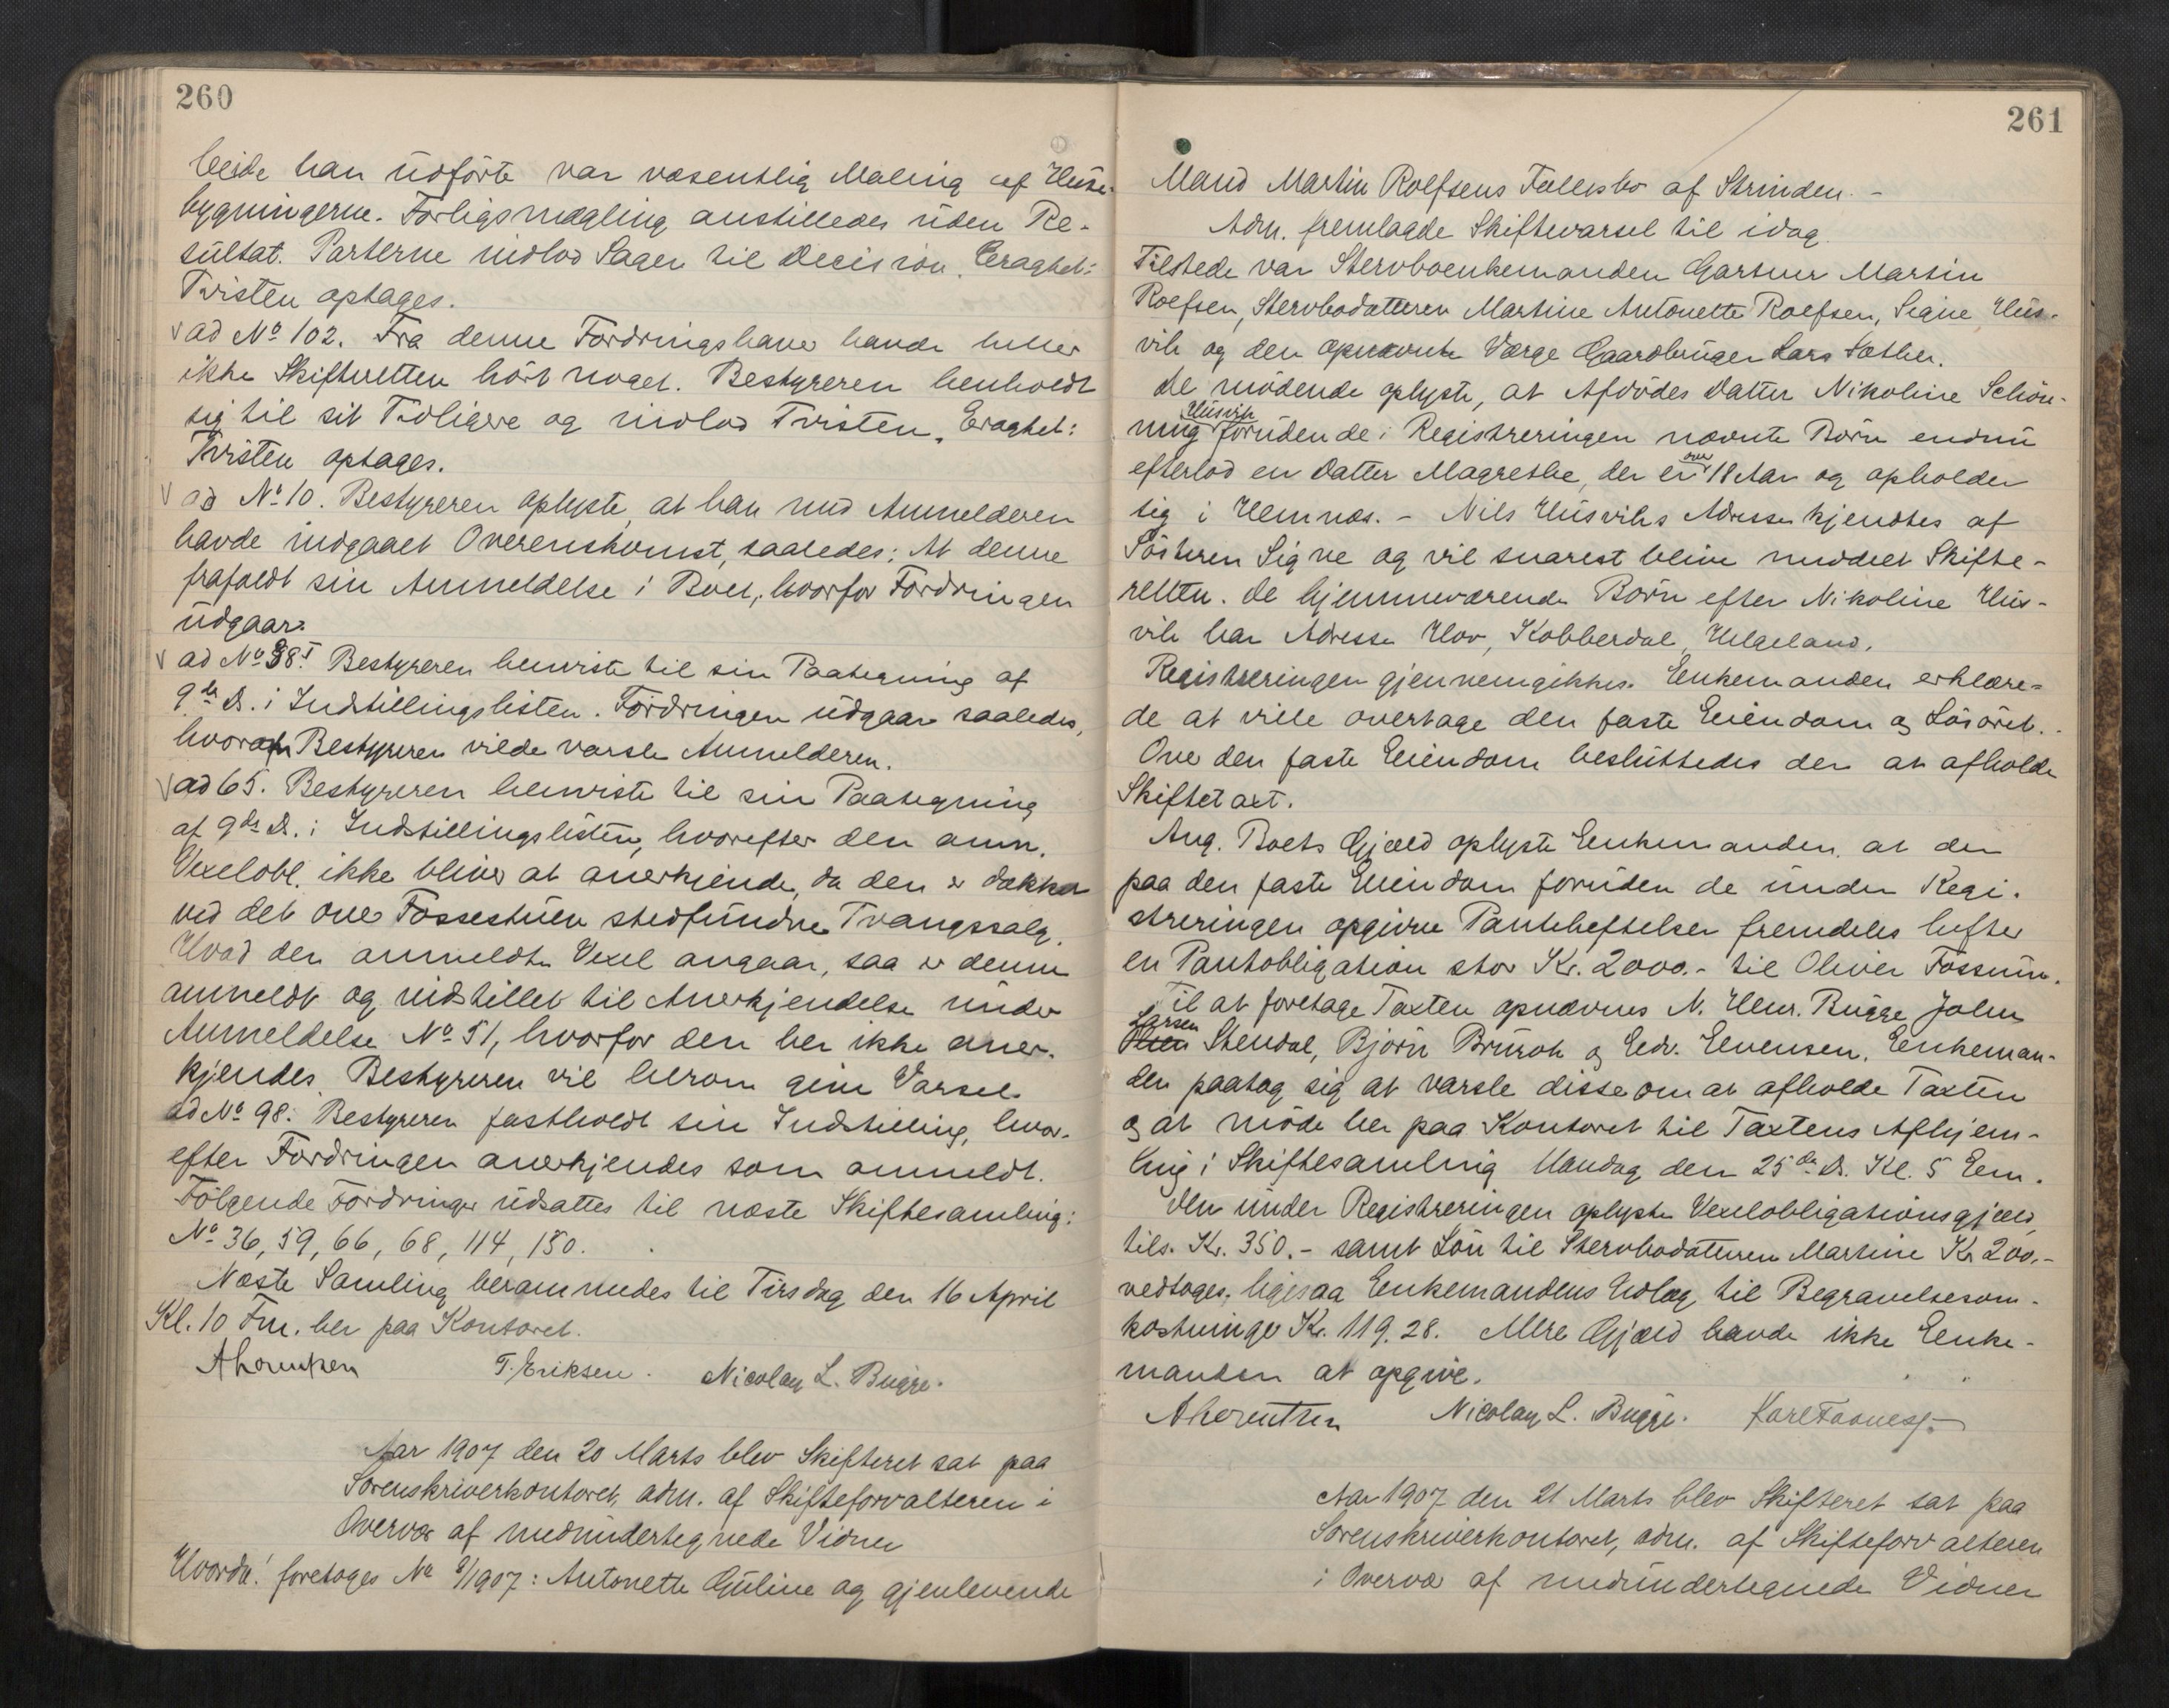 260
beide han udførte var væsentlig Maling af Huse-
bygningerne. Forligsmægling anstilledes uden Re-
sultat. Parterne indlod Sagen til Decision. Eragtet:
Tvisten optages.
ad No 102. Fra denne Fordringshaver havde heller
ikke Skifteretten hørt noget. Bestyreren henholdt
sig til sit Tidligere og indlod Tvisten. Eragtet:
Tvisten optages.
ad No 10. Bestyreren oplyste, at han med Anmelderen
havde indgaaet Overenskomst, saaledes: At denne
frafaldt sin Anmeldelse i Boet, hvorfor Fordringen
udgaar.
ad No 38I. Bestyreren henviste til sin Paategning af
9de ds. i Indstillingslisten. Fordringen udgaar saaledes,
hvorom Bestyreren vilde varsle Anmelderen.
ad 65. Bestyreren henviste til sin Paategning
af 9de ds. i Indstillingslisten, hvorefter den anm.
Vexelobl. ikke bliver at anerkjende, da den er dækket
ved det over Fossestuen stedfundne Tvangssalg.
Hvad den anmeldte Vexel angaar, saa er denne
anmeldt og indstillet til Anerkjendelse under
Anmeldelse No 51, hvorfor den her ikke aner-
kjendes. Bestyreren vil herom give Varsel.
ad No 98. Bestyreren fastholdt sin Indstilling, hvor-
efter Fordringen anerkjendes som anmeldt.
Følgende Fordringer udsattes til næste Skiftesamling:
No 36, 59, 66, 68, 114, 130.
Næste Samling berammedes til Tirsdag den 16 April
Kl. 10 Fm. her paa Kontoret.
T. Eriksen. Nicolay L. Bugge.
Aar 1907 den 20 Marts blev Skifteret sat paa
Sorenskriverkontoret, adm. af Skifteforvalteren i
Overvær af medundertegnede Vidner
Hvorda! foretoges No 8/1907: Antonette Guline og gjenlevende
261
Mand Martin Rolfsens Fællesbo af Strinden. -
Adm. fremlagde Skiftevarsel til idag.
Tilstede var Stervboenkemanden Gartner Martin
Roefsen, Stervbodatteren Martine Antonette Roefsen, Signe Hus-
vik og den opnævnte Værge Gaardbruger Lars Sæther.
De mødende oplyste, at Afdødes Datter Nikoline Schøn-
ning Husvik foruden de i Registreringen nævnte Børn endnu
efterlod en Datter Magrethe, der er over 18 Aar og opholder
sig i Hemnæs. - Nils Husviks Adresse kjendtes af
Søsteren Signe og vil snarest blive meddelt Skifte-
retten. De hjemmeværende Børn efter Nikoline Hus-
vik har Adresse Hov, Kobberdal, Helgeland.
Registreringen gjennemgikkes. Enkemanden erklære-
de at ville overtage den faste Eiendom og Løsøret.
Over den faste Eiendom besluttedes der at afholde
Skiftetaxt.
Ang. Boets Gjæld oplyste Enkemanden, at der
paa den faste Eiendom foruden de under Regi-
streringen opgivne Pantehæftelser fremdeles hefter
en Pantobligation stor Kr. 2000.- til Oliver Fossum.
Til at foretage Taxten opnævnes N. Henr. Bugge, John
Larsen Stendal, Bjørn Brurok og Edv. Evensen. Enkeman-
den paatog sig at varsle disse om at afholde Taxten
og at møde her paa Kontoret til Taxtens Afhjem-
ling i Skiftesamling Mandag den 25de ds. Kl. 5 Em.
Den under Registreringen oplyste Vexelobligationsgjæld,
tils. Kr. 350.- samt Løn til Stervbodatteren Martine Kr 200.-
vedtoges, ligesaa Enkemandens Udlæg til Begravelsesom-
kostninger Kr. 119.28. Mere Gjæld havde ikke Enke-
manden at opgive.
Nicolay L. Bugge.
Aar 1907 den 21 Marts blev Skifteret sat paa
Sorenskriverkontoret, adm. af Skifteforvalteren
i Overvær af medundertegnede Vidner